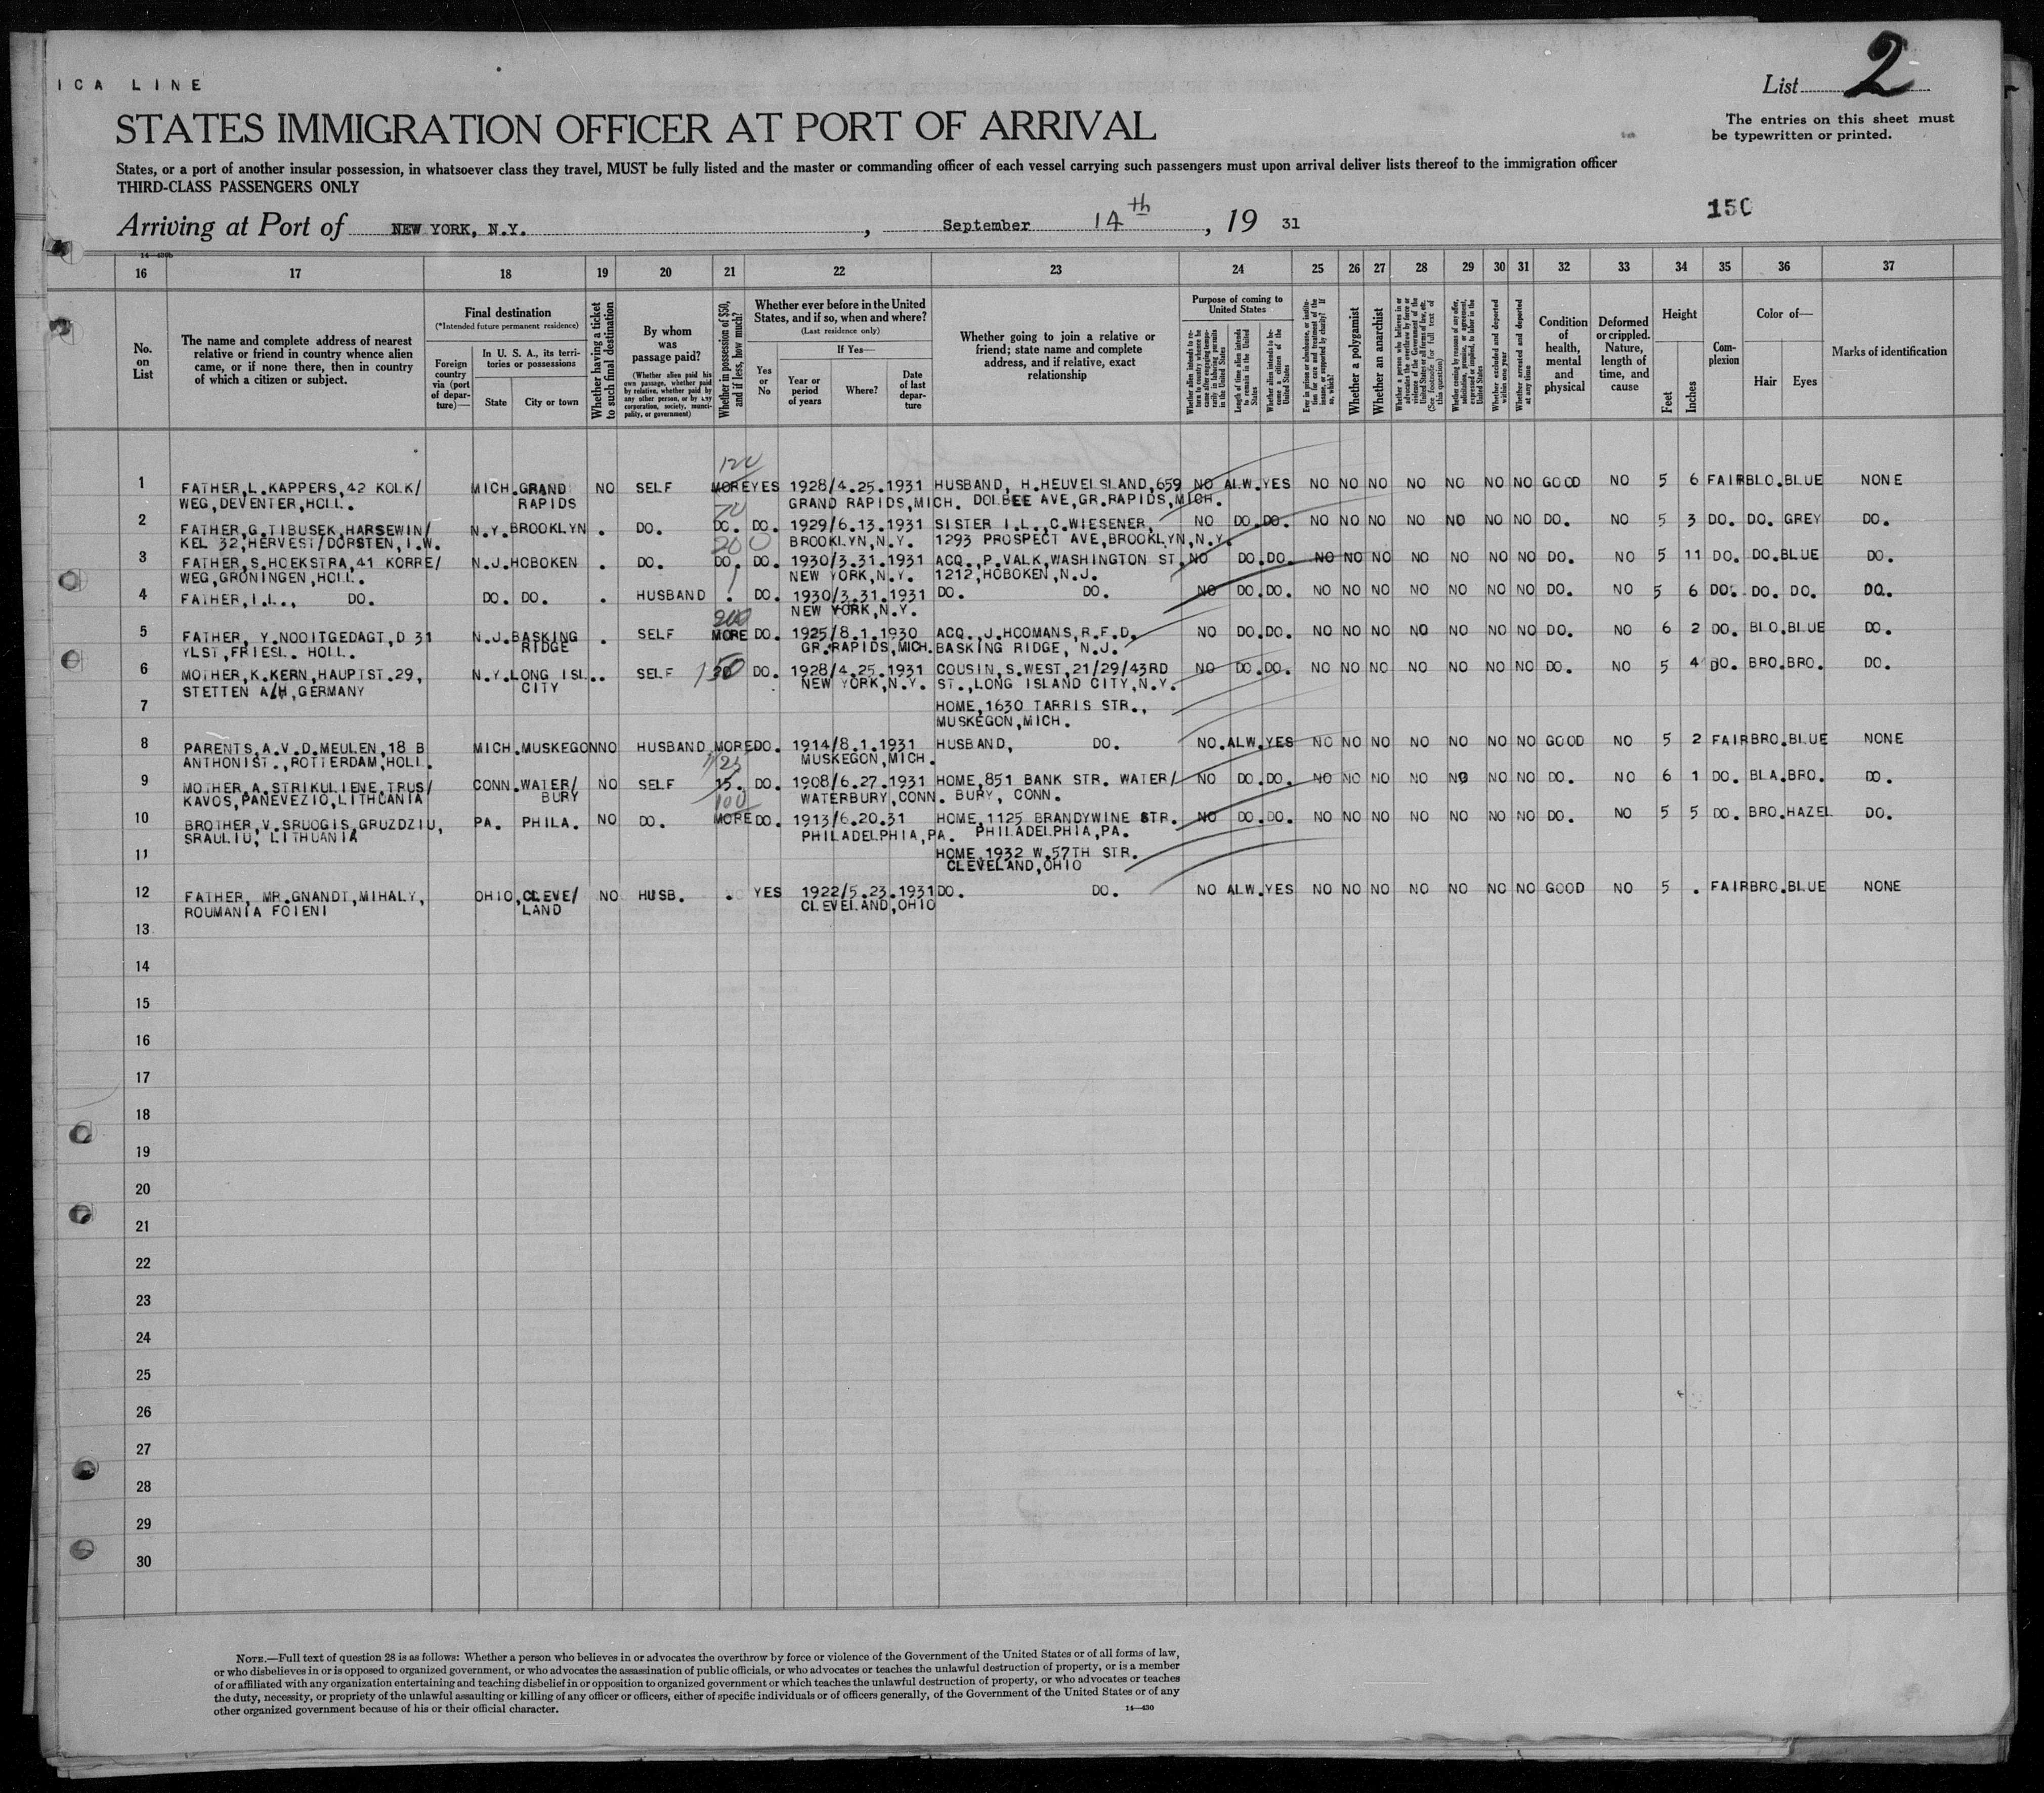 ICA LINE
List 2
STATES IMMIGRATION OFFICER AT PORT OF ARRIVAL
The entries on this sheet must
be typewritten or printed.
States, or a port of another insular possession, in whatsoever class they travel, MUST be fully listed and the master or commanding officer of each vessel carrying such passengers must upon arrival deliver lists thereof to the immigration officer
THIRD-CLASS PASSENGERS ONLY
150
Arriving at Port of NEW YORK, N.Y., September 14th, 19 31
14—430b
16 17 18 19 20 21 22 23 24 25 26 27 28 29 30 31 32 33 34 35 36 37
No. on List
The name and complete address of nearest relative or friend in country whence alien came, or if none there, then in country of which a citizen or subject.
Final destination
(*Intended future permanent residence)
Foreign country via (port of departure)—
In U. S. A., its territories or possessions
State
City or town
Whether having a ticket to such final destination
By whom was passage paid?
(Whether alien paid his own passage, whether paid by relative, whether paid by any other person, or by any corporation, society, municipality, or government)
Whether in possession of $50, and if less, how much?
Whether ever before in the United States, and if so, when and where?
(Last residence only)
Yes or No
If Yes—
Year or period of years
Where?
Date of last departure
Whether going to join a relative or friend; state name and complete address, and if relative, exact relationship
Purpose of coming to United States
Whether alien intends to return to country whence he came after engaging temporarily in laboring pursuits in the United States
Length of time alien intends to remain in the United States
Whether alien intends to become a citizen of the United States
Ever in prison or almshouse, or institution for care and treatment of the insane, or supported by charity? If so, which?
Whether a polygamist
Whether an anarchist
Whether a person who believes in or advocates the overthrow by force or violence of the Government of the United States or all forms of law, etc. (See footnote for full text of this question)
Whether coming by reason of any offer, solicitation, promise, or agreement, expressed or implied, to labor in the United States
Whether excluded and deported within one year
Whether arrested and deported at any time
Condition of health, mental and physical
Deformed or crippled. Nature, length of time, and cause
Height
Feet
Inches
Complexion
Color of—
Hair
Eyes
Marks of identification
120
1 FATHER,L.KAPPERS,42 KOLK/ MICH.GRAND NO SELF MORE YES 1928/4.25.1931 HUSBAND, H.HEUVELSLAND,659 NO ALW.YES NO NO NO NO NO NO NO GOOD NO 5 6 FAIR BLO.BLUE NONE
WEG,DEVENTER,HOLL. RAPIDS GRAND RAPIDS,MICH. DOLBEE AVE,GR.RAPIDS,MICH.
70
2 FATHER,G.TIBUSEK,HARSEWIN/ N.Y.BROOKLYN . DO. DO. DO. 1929/6.13.1931 SISTER I.L.,C.WIESENER, NO DO.DO. NO NO NO NO NO NO NO DO. NO 5 3 DO. DO. GREY DO.
KEL 32,HERVEST/DORSTEN,I.W. BROOKLYN,N.Y. 1293 PROSPECT AVE,BROOKLYN,N.Y.
200
3 FATHER,S.HOEKSTRA,41 KORRE/ N.J.HOBOKEN . DO. DO. DO. 1930/3.31.1931 ACQ.,P.VALK,WASHINGTON ST. NO DO.DO. NO NO NO NO NO NO NO DO. NO 5 11 DO. DO.BLUE DO.
WEG,GRONINGEN,HOLL. NEW YORK,N.Y. 1212,HOBOKEN,N.J.
4 FATHER,I.L., DO. DO. DO. . HUSBAND . DO. 1930/3.31.1931 DO. DO. NO DO.DO. NO NO NO NO NO NO NO DO. NO 5 6 DO. DO. DO. DO.
NEW YORK,N.Y.
200
5 FATHER, Y.NOOITGEDAGT,D 31 N.J.BASKING . SELF MORE DO. 1925/8.1.1930 ACQ.,J.HOOMANS,R.F.D. NO DO.DO. NO NO NO NO NO NO NO DO. NO 6 2 DO. BLO.BLUE DO.
YLST,FRIESL. HOLL. RIDGE GR.RAPIDS,MICH. BASKING RIDGE, N.J.
6 MOTHER,K.KERN,HAUPTST.29, N.Y.LONG ISL.. SELF 150 DO. 1928/4.25.1931 COUSIN,S.WEST,21/29/43RD NO DO.DO. NO NO NO NO NO NO NO DO. NO 5 4 DO. BRO.BRO. DO.
STETTEN A/H,GERMANY CITY NEW YORK,N.Y. ST.,LONG ISLAND CITY,N.Y.
7 HOME,1630 TARRIS STR.,
MUSKEGON,MICH.
8 PARENTS,A.V.D.MEULEN,18 B MICH.MUSKEGON NO HUSBAND MORE DO. 1914/8.1.1931 HUSBAND, DO. NO.ALW.YES NO NO NO NO NO NO NO GOOD NO 5 2 FAIR BRO.BLUE NONE
ANTHONIST.,ROTTERDAM,HOLL. MUSKEGON,MICH.
9 MOTHER,A.STRIKULIENE,TRUS/ CONN.WATER/ NO SELF 15. DO. 1908/6.27.1931 HOME,851 BANK STR. WATER/ NO DO.DO. NO NO NO NO NO NO NO DO. NO 6 1 DO. BLA.BRO. DO.
KAVOS,PANEVEZIO,LITHUANIA BURY WATERBURY,CONN. BURY, CONN.
100
10 BROTHER,V.SRUOGIS,GRUZDZIU, PA. PHILA. NO DO. MORE DO. 1913/6.20.31 HOME,1125 BRANDYWINE STR. NO DO.DO. NO NO NO NO NO NO NO DO. NO 5 5 DO. BRO.HAZEL DO.
SRAULIU, LITHUANIA PHILADELPHIA,PA. PHILADELPHIA,PA.
11 HOME,1932 W.57TH STR.
CLEVELAND,OHIO
12 FATHER, MR.GNANDT,MIHALY, OHIO,CLEVE/ NO HUSB. . YES 1922/5.23.1931 DO. DO. NO ALW.YES NO NO NO NO NO NO NO GOOD NO 5 . FAIR BRO.BLUE NONE
ROUMANIA FOIENI LAND CLEVELAND,OHIO
13
14
15
16
17
18
19
20
21
22
23
24
25
26
27
28
29
30
NOTE.—Full text of question 28 is as follows: Whether a person who believes in or advocates the overthrow by force or violence of the Government of the United States or of all forms of law,
or who disbelieves in or is opposed to organized government, or who advocates the assassination of public officials, or who advocates or teaches the unlawful destruction of property, or is a member
of or affiliated with any organization entertaining and teaching disbelief in or opposition to organized government or which teaches the unlawful destruction of property, or who advocates or teaches
the duty, necessity, or propriety of the unlawful assaulting or killing of any officer or officers, either of specific individuals or of officers generally, of the Government of the United States or of any
other organized government because of his or their official character.
14—430